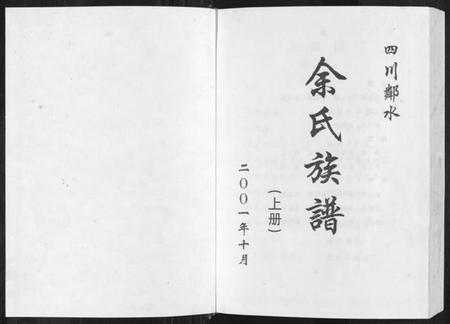 四川鄰水
余氏族譜
（上册）
二00一年十月